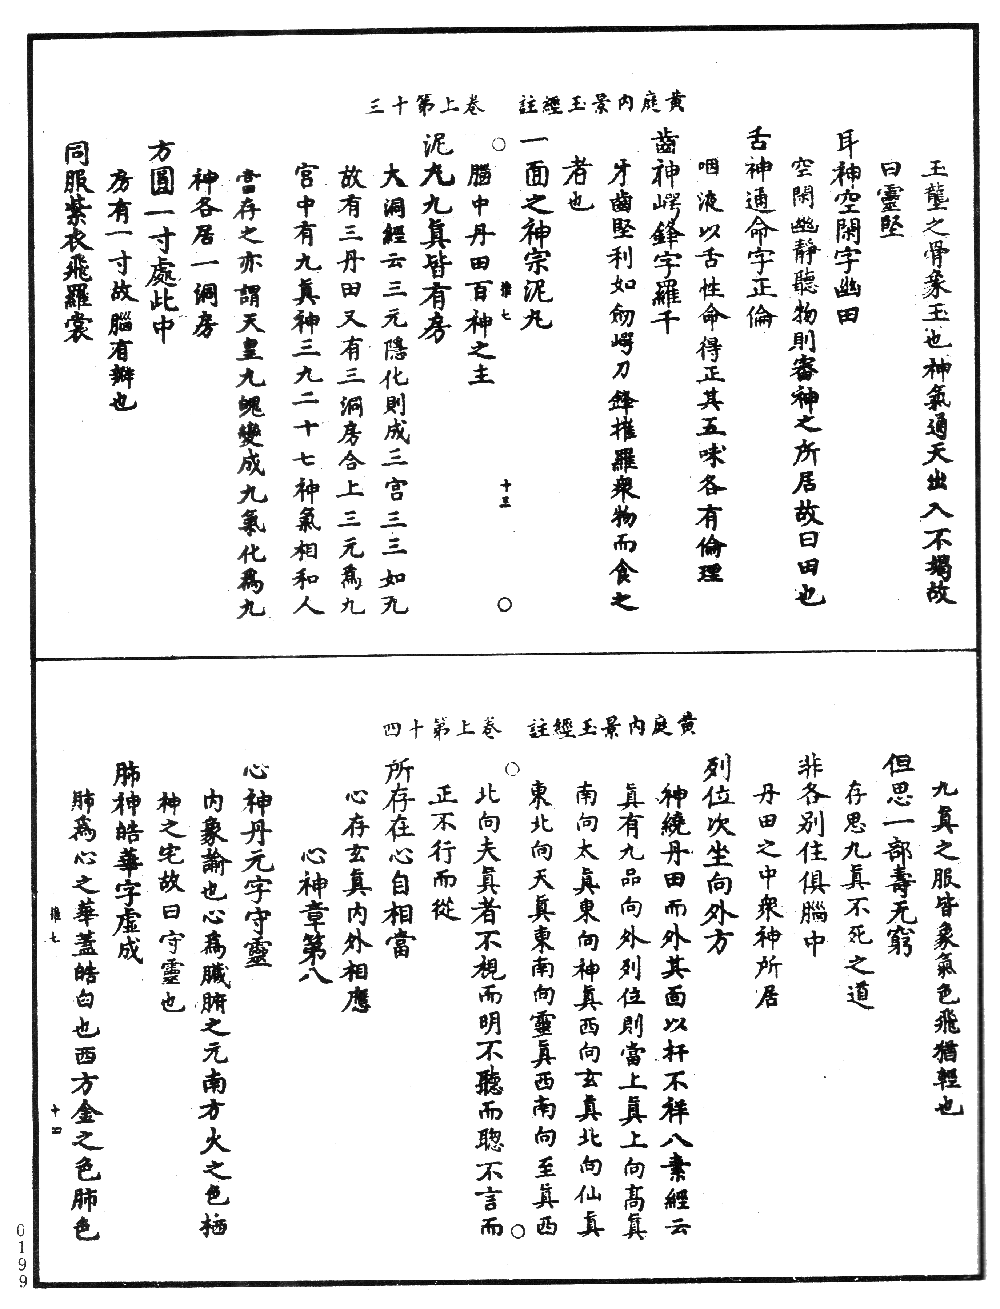 黃庭內景玉經註　卷上第十三
玉壟之骨象玉也神氣通天出入不竭故
曰靈堅
耳神空閑字幽田
空閑幽靜聽物則審神之所居故曰田也
舌神通命字正倫
咽液以舌性命得正其五味各有倫理
齒神崿鋒字羅千
牙齒堅利如劒崿刀鋒摧羅衆物而食之
者也
一面之神宗泥丸
腦中丹田百神之主
推七　十三
泥丸九眞皆有房
大洞經云三元隱化則成三宮三三如九
故有三丹田又有三洞房合上三元爲九
宮中有九眞神三九二十七神氣相和人
當存之亦謂天皇九魄變成九氣化爲九
神各居一洞房
方圓一寸處此中
房有一寸故腦有瓣也
同服紫衣飛羅裳
黃庭內景玉經註　卷上第十四
九眞之服皆象氣色飛猶輕也
但思一部壽无窮
存思九眞不死之道
非各別住俱腦中
丹田之中衆神所居
列位次坐向外方
神繞丹田而外其面以杆不祥八素經云
眞有九品向外列位則當上眞上向高眞
南向太眞東向神眞西向玄眞北向仙眞
東北向天眞東南向靈眞西南向至眞西
北向夫眞者不視而明不聽而聦不言而
正不行而從
所存在心自相當
心存玄眞內外相應
心神章第八
心神丹元字守靈
內象諭也心爲臟腑之元南方火之色栖
神之宅故曰守靈也
肺神皓華字虛成
肺爲心之華蓋皓白也西方金之色肺色
推七　十四
0199